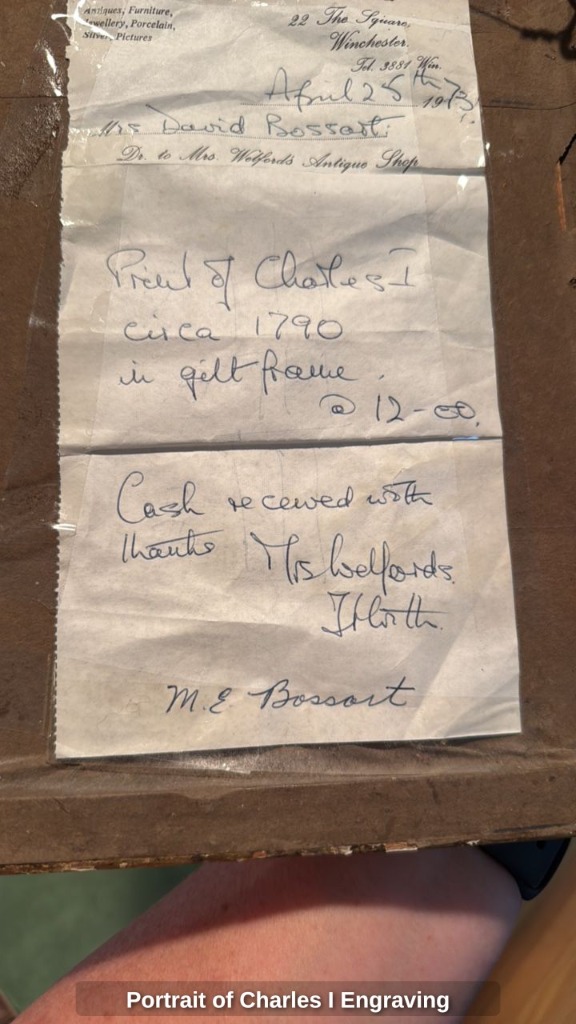 Antiques, Furniture,
Jewellery, Porcelain,
Silver, Pictures
22 The Square,
Winchester.
Tel. 3881 Win.
April 25th 1973.
Mrs David Bossart.
Dr. to Mrs. Welford's Antique Shop
Print of Charles I
circa 1790
in gilt frame.
@ 12-00.
Cash received with
thanks Mrs Welfords.
M.E Bossart
Portrait of Charles I Engraving